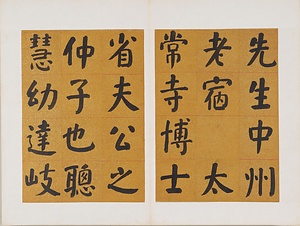 先生中州
老宿太
常寺博士
省夫公之
仲子也聰
慧幼達岐